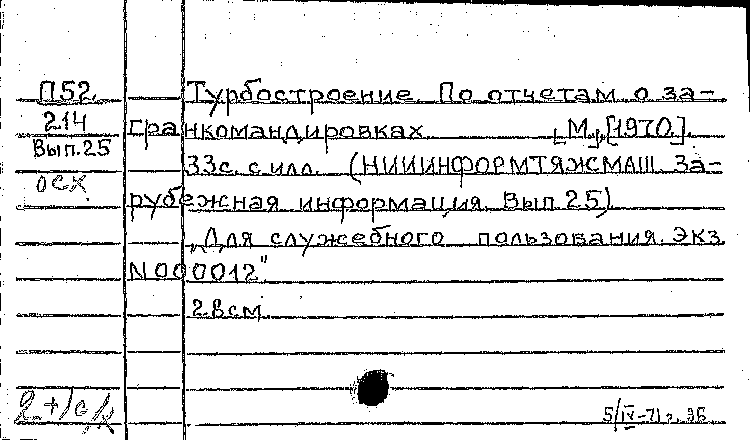 П52.
214
Вып.25
осх
Турбостроение. По отчетам о за-
гранкомандировках [М.,] [1970].
33с. с илл. (НИИИНФОРМТЯЖМАШ. За-
рубежная информация. Вып.25)
„Для служебного пользования. Экз.
N000012"
28см.
5/IV-71г. 96